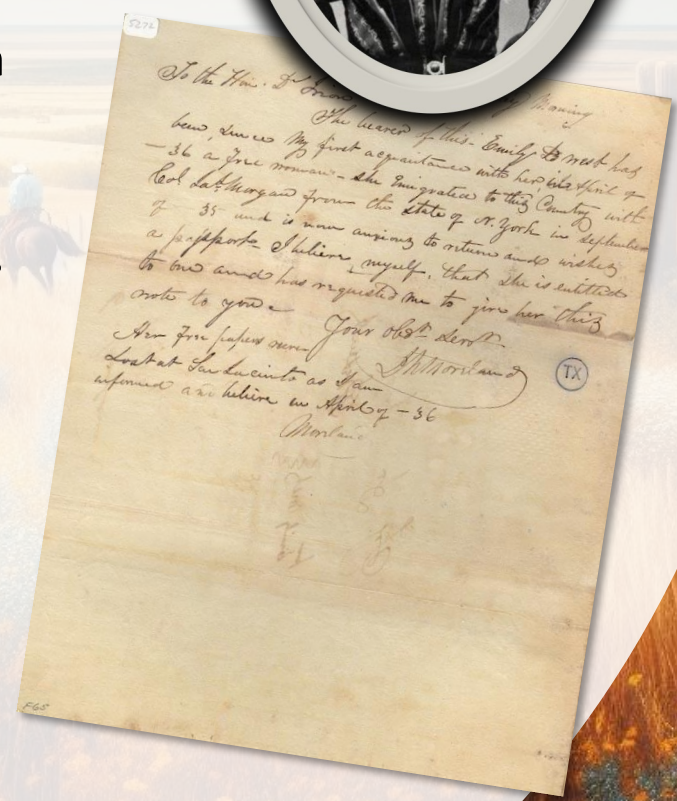 5272
To the Hon. Dr Irion
Morning
The bearer of this - Emily D. West has
been, since my first acquaintance with her, in April of
- 36 a free woman - she Emigrated to this Country with
Col. Jas Morgan from the state of N. York in september
of 35 and is now anxious to return and wishes
a passport - I believe myself, that she is entitled
to one and has requested me to give her this
note to you -
Your obt Servt
I N Moreland
Her free papers were
Lost at San Jacinto as I am
informed and believe in April of - 36
Moreland
TX
F65